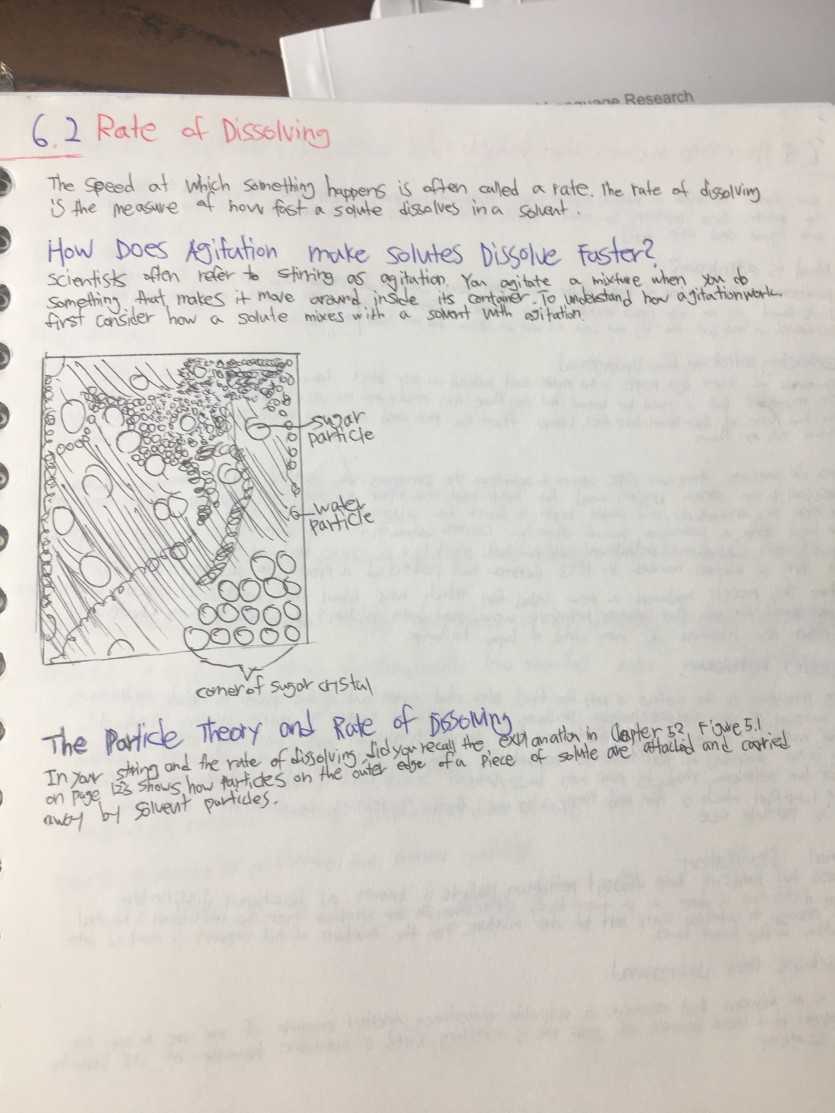 Language Research
6.2 Rate of Dissolving
The speed at which something happens is often called a rate. The rate of dissolving
is the measure of how fast a solute dissolves in a solvent.
How Does Agitation make solutes Dissolve Faster?
Scientists often refer to stirring as agitation. You agitate a mixture when you do
something that makes it move around inside its container. To understand how agitation work.
first consider how a solute mixes with a solvent with agitation.
sugar
particle
water
particle
corner of sugar crystal
The Particle Theory and Rate of Dissolving
In your string and the rate of dissolving, did you recall the explanation in Chapter 5? Figure 5.1
on page 123 shows how particles on the outer edge of a piece of solute are attached and carried
away by solvent particles.